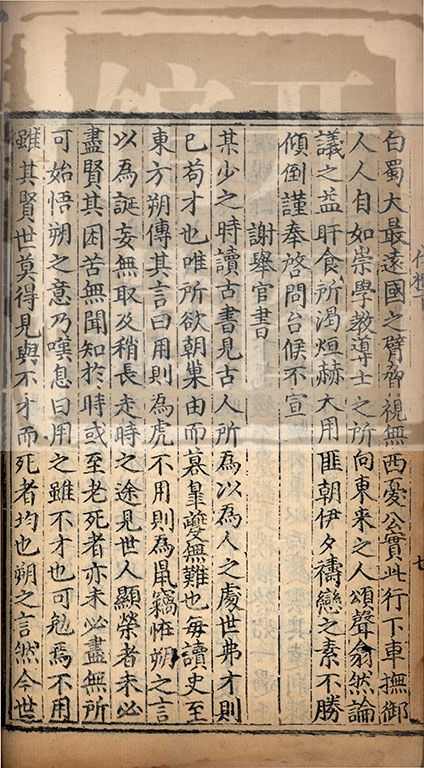 白蜀大最遠國之臂齊視無西憂公實此行下車撫御
人人自如崇學教導士之所向東来之人頌聲翕然論
議之益旰食所渴烜赫大用匪朝伊夕禱戀之素不勝
傾倒謹奉啓問台候不宣
謝舉官書
某少之時讀古書見古人所為以為人之處世弗才則
已苟才也唯所欲朝巢由而暮臯夔無難也每讀史至
東方朔傳其言曰用則為虎不用則為鼠竊恠朔之言
以為誕妄無取及稍長走時之途見世人顯榮者未必
盡賢其困苦無聞知於時或至老死者亦未必盡無所
可始悟朔之意乃嘆息曰用之雖不才也可勉焉不用
雖其賢世莫得見與不才而死者均也朔之言然今世